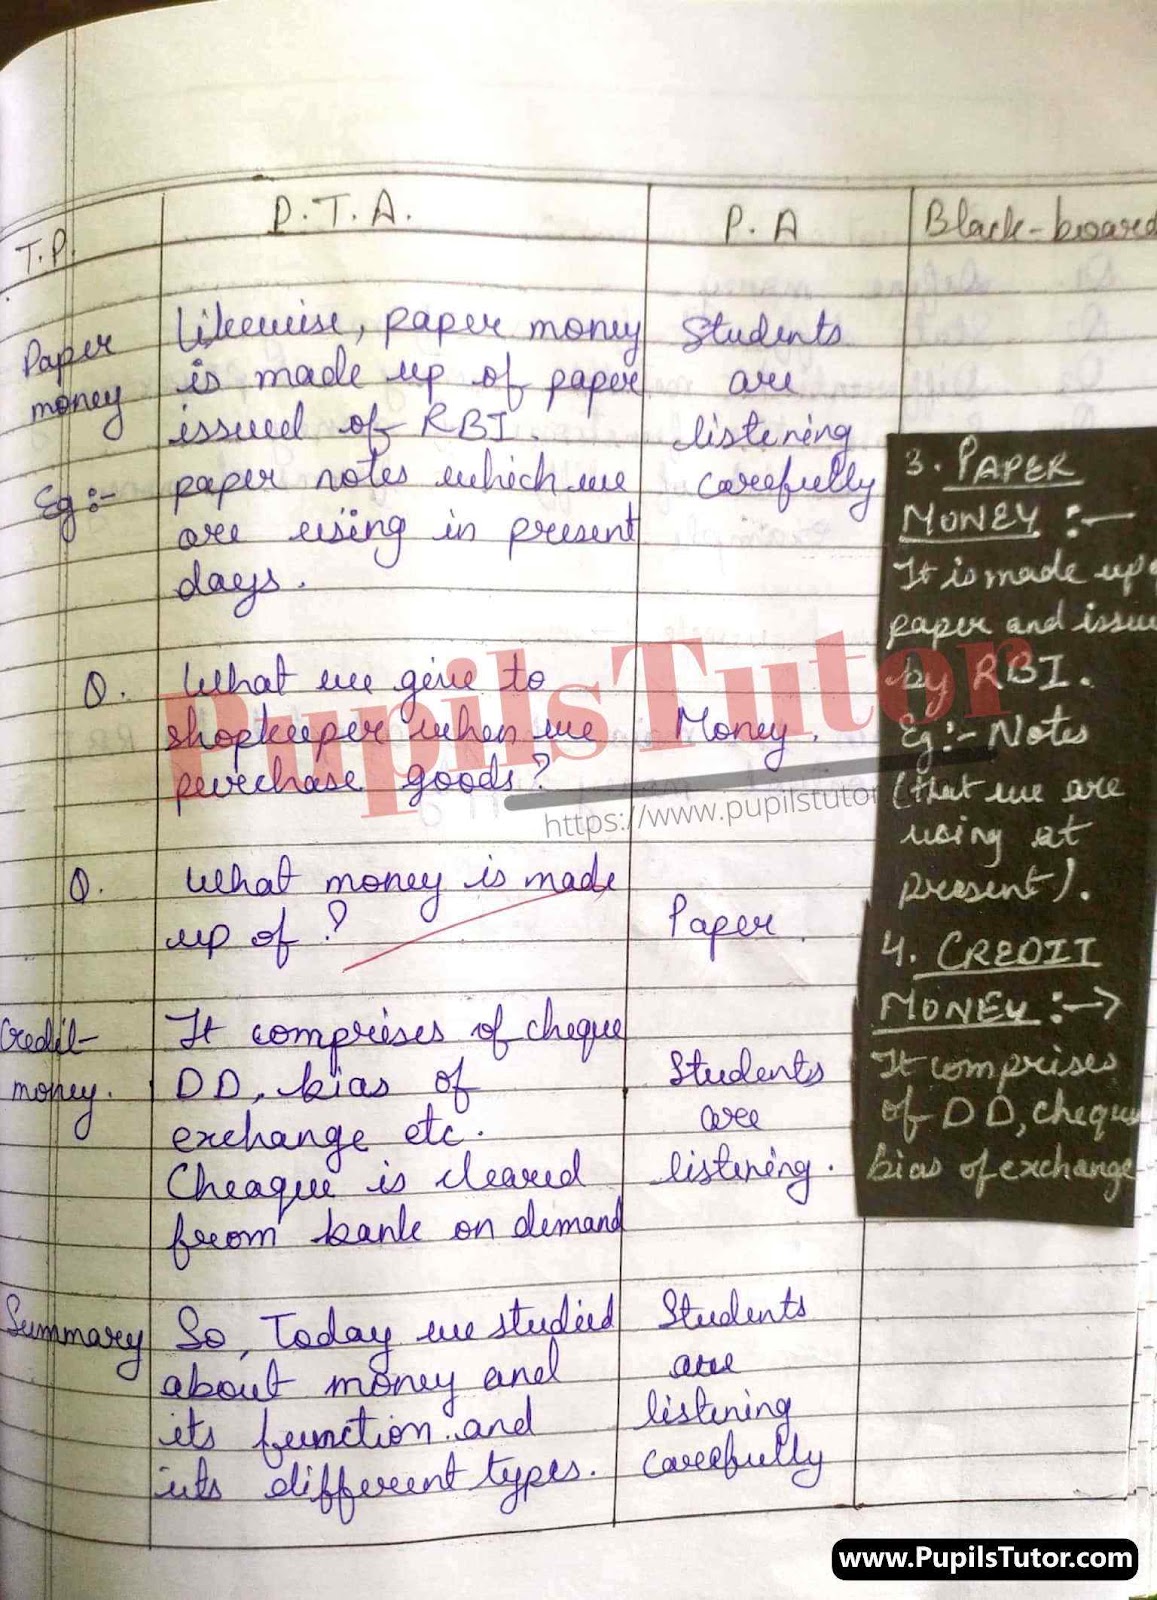 T.P.
P.T.A.
P.A
Black-board
Paper
money
Likewise, paper money
is made up of paper
issued of RBI.
Eg :-
paper notes which we
are using in present
days.
Students
are
listening
carefully
Q.
What we give to
shopkeeper when we
purchase goods?
Money.
Q.
What money is made
up of ?
Paper.
Credit-
money.
It comprises of cheque
DD, bias of
exchange etc.
Cheaque is cleared
from bank on demand
Students
are
listening.
Summary
So, Today we studied
about money and
its function and
its different types.
Students
are
listening
carefully
3. PAPER
MONEY :-
It is made up
paper and issu
by RBI.
Eg :- Notes
(that we are
using at
present).
4. CREDIT
MONEY :->
It comprises
of DD, cheque
bias of exchange
PupilsTutor
https://www.pupilstutor
www.PupilsTutor.com